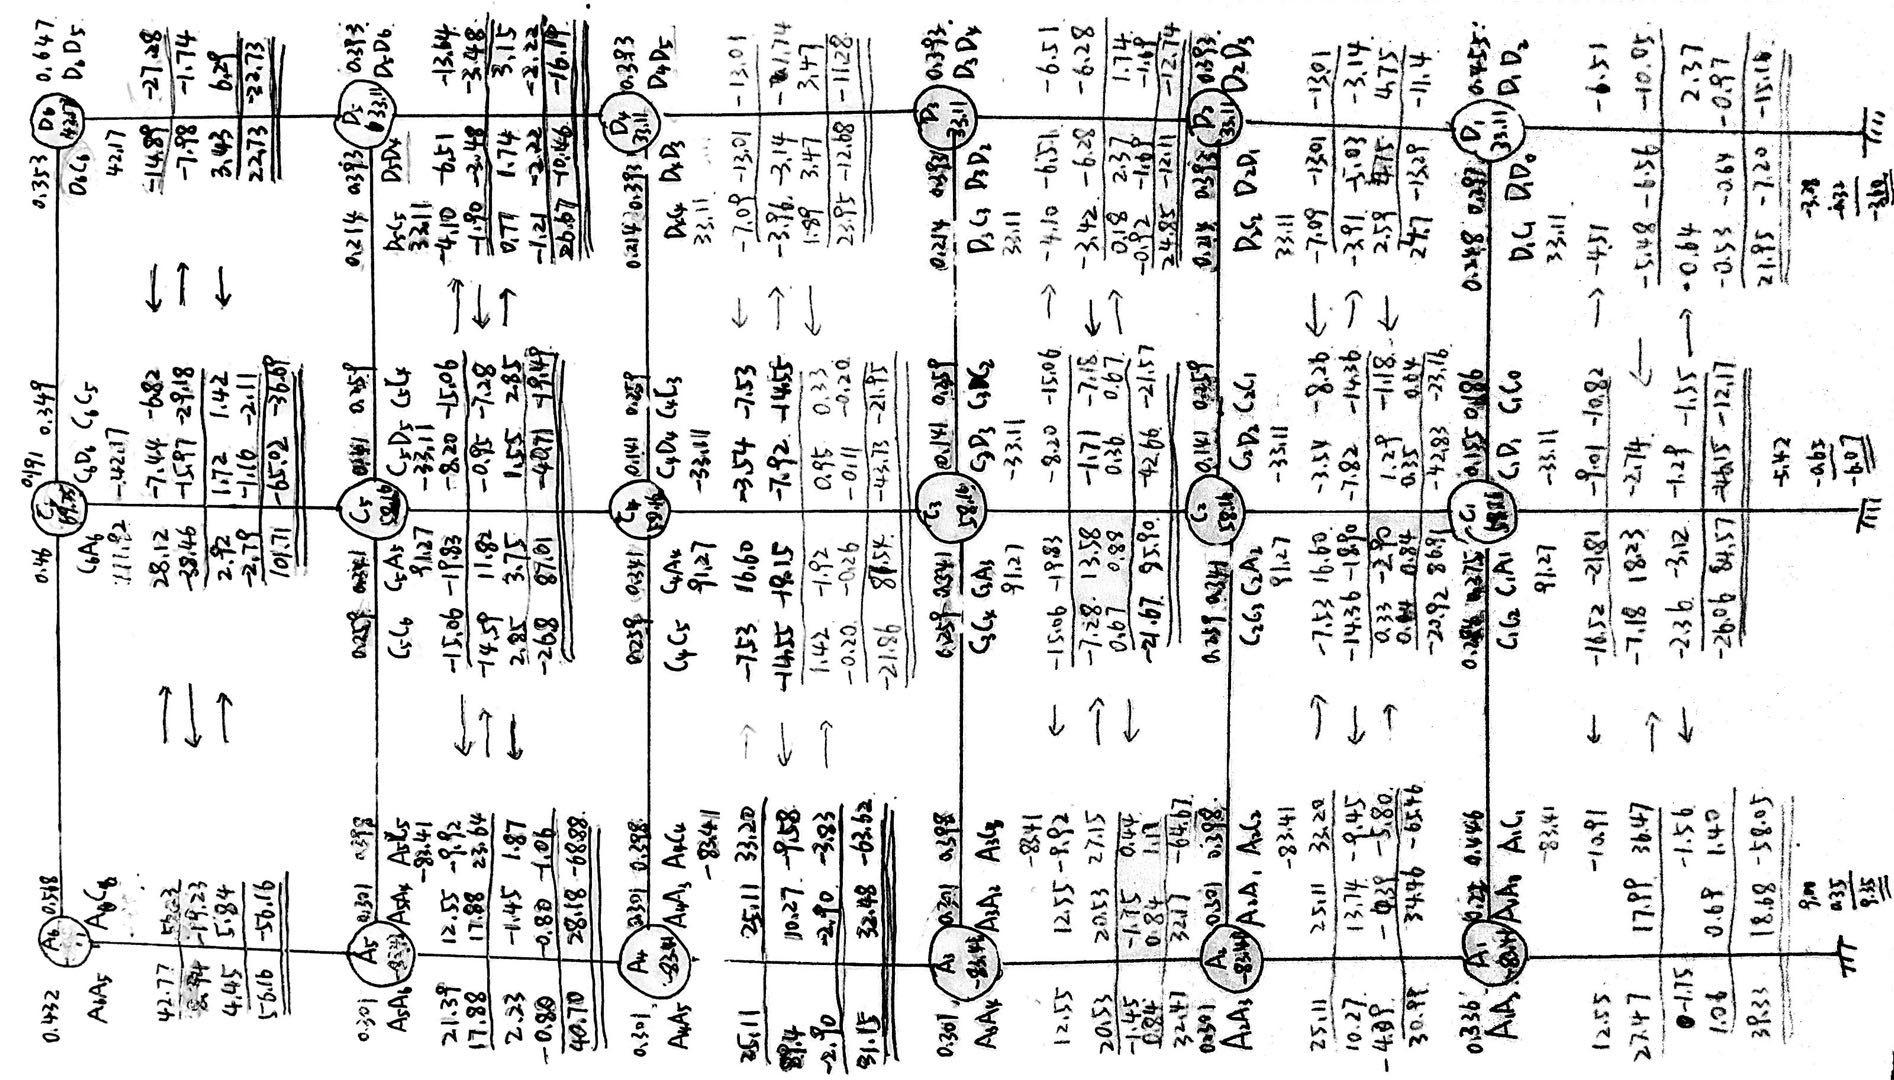 0.432 A6 0.568
A6A5 A6C6
42.77
4.45 5.84
56.16 -56.16
0.46 C6 0.191 0.349
C6A6 C6D6 C6C5
-42.17
28.12 -7.44 -6.82
-38.46 -15.97 -29.18
2.92 1.72 1.42
-2.79 -1.16 -2.11
101.71 -65.02 -36.69
0.353 D6 0.647
D6C6 D6D5
42.17
-14.89 -27.28
-7.98 -1.74
3.43 6.29
22.73 -22.73
0.301 A5 0.301 0.398
A5A6 A5A4 A5C5
-83.41
21.39 12.55 -9.92
17.88 17.88 23.64
2.23 -1.45 1.87
-0.80 -0.80 -1.06
40.70 28.18 -68.88
0.259 0.341 C5 0.141 0.259
C5C6 C5A5 C5D5 C5C4
91.27 -33.11
-15.06 -19.83 -8.20 -15.06
-14.59 11.82 -0.95 -7.28
2.85 3.75 1.55 2.85
-26.8 87.01 -40.71 -19.49
0.214 0.393 D5 0.393
D5C5 D5D4 D5D6
33.11
-4.10 -6.51 -13.64
-1.90 -3.48 -3.48
0.77 1.74 3.15
-1.21 -2.22 -2.22
26.67 -10.46 -16.19
0.301 A4 0.301 0.398
A4A5 A4A3 A4C4
-83.41
25.11 25.11 33.20
10.27 -9.58
-2.90 -2.90 -3.83
31.15 32.48 -63.62
0.259 0.341 C4 0.141 0.259
C4C5 C4A4 C4D4 C4C3
91.27 -33.11
-7.53 16.60 -3.54 -7.53
-14.55 -19.15 -7.92 -14.55
1.42 -1.92 0.95 0.33
-0.20 -0.26 -0.11 -0.20
-21.86 86.54 -43.73 -21.95
0.214 0.393 D4 33.11 0.393
D4C4 D4D3 D4D5
33.11
-7.09 -13.01 -13.01
-3.96 -3.14 -1.74
1.89 3.47 3.47
23.95 -12.68 -11.28
0.301 A3 0.301 0.398
A3A4 A3A2 A3C3
-83.41
12.55 12.55 -9.92
20.53 20.53 27.15
-1.45 -1.75 0.44
0.84 0.84 1.12
32.47 32.17 -64.67
0.259 0.341 C3 58.16 0.141 0.259
C3C4 C3A3 C3D3 C3C2
91.27 -33.11
-15.06 -19.83 -8.20 -15.06
-7.28 13.58 -1.71 -7.18
0.67 0.88 0.36 0.67
-21.67 95.90 -42.66 -21.57
0.214 0.393 D3 33.11 0.393
D3C3 D3D2 D3D4
33.11
-4.10 -6.51 -6.51
-3.42 -6.28 -6.28
0.18 2.37 1.74
-0.92 -1.69 -1.69
24.85 -12.11 -12.74
0.301 A2 0.301 0.398
A2A3 A2A1 A2C2
-83.41
25.11 25.11 33.20
10.27 13.74 -9.45
-4.39 -4.39 -5.80
30.99 34.46 -65.46
0.259 0.341 C2 58.16 0.141 0.259
C2C3 C2A2 C2D2 C2C1
91.27 -33.11
-7.53 16.60 -3.54 -8.26
-14.36 -18.90 -7.82 -14.36
0.33 -2.90 1.29 -1.18
0.64 0.84 0.35 0.64
-20.92 86.91 -42.83 -23.16
0.214 0.393 D2 33.11 0.393
D2C2 D2D1 D2D3
33.11
-7.09 -13.01 -13.01
-3.91 -5.03 -3.14
2.59 4.75 4.75
24.7 -13.29 -11.4
0.336 A1 0.446
A1A2 A1A0 A1C1
-83.41
12.55 -10.91
27.47 17.99 36.47
-1.75 -1.56
1.06 0.69 1.40
39.33 18.68 -58.05
9.00
0.35
9.35
0.275 C1 0.155 0.186
C1C2 C1A1 C1D1 C1C0
91.27 -33.11
-16.52 -21.81 -9.01 -10.82
-7.18 18.23 -2.74
-2.36 -3.12 -1.29 -1.55
-26.06 84.57 -46.15 -12.17
-5.42
-0.65
-6.07
0.248 0.297 D1 33.11 0.455
D1C1 D1D0 D1D2
33.11
-4.51 -6.51
-5.48 -6.56 -10.05
-0.64 2.37
-0.53 -0.64 -0.97
21.95 -7.20 -15.16
-3.28
-0.32
-3.60